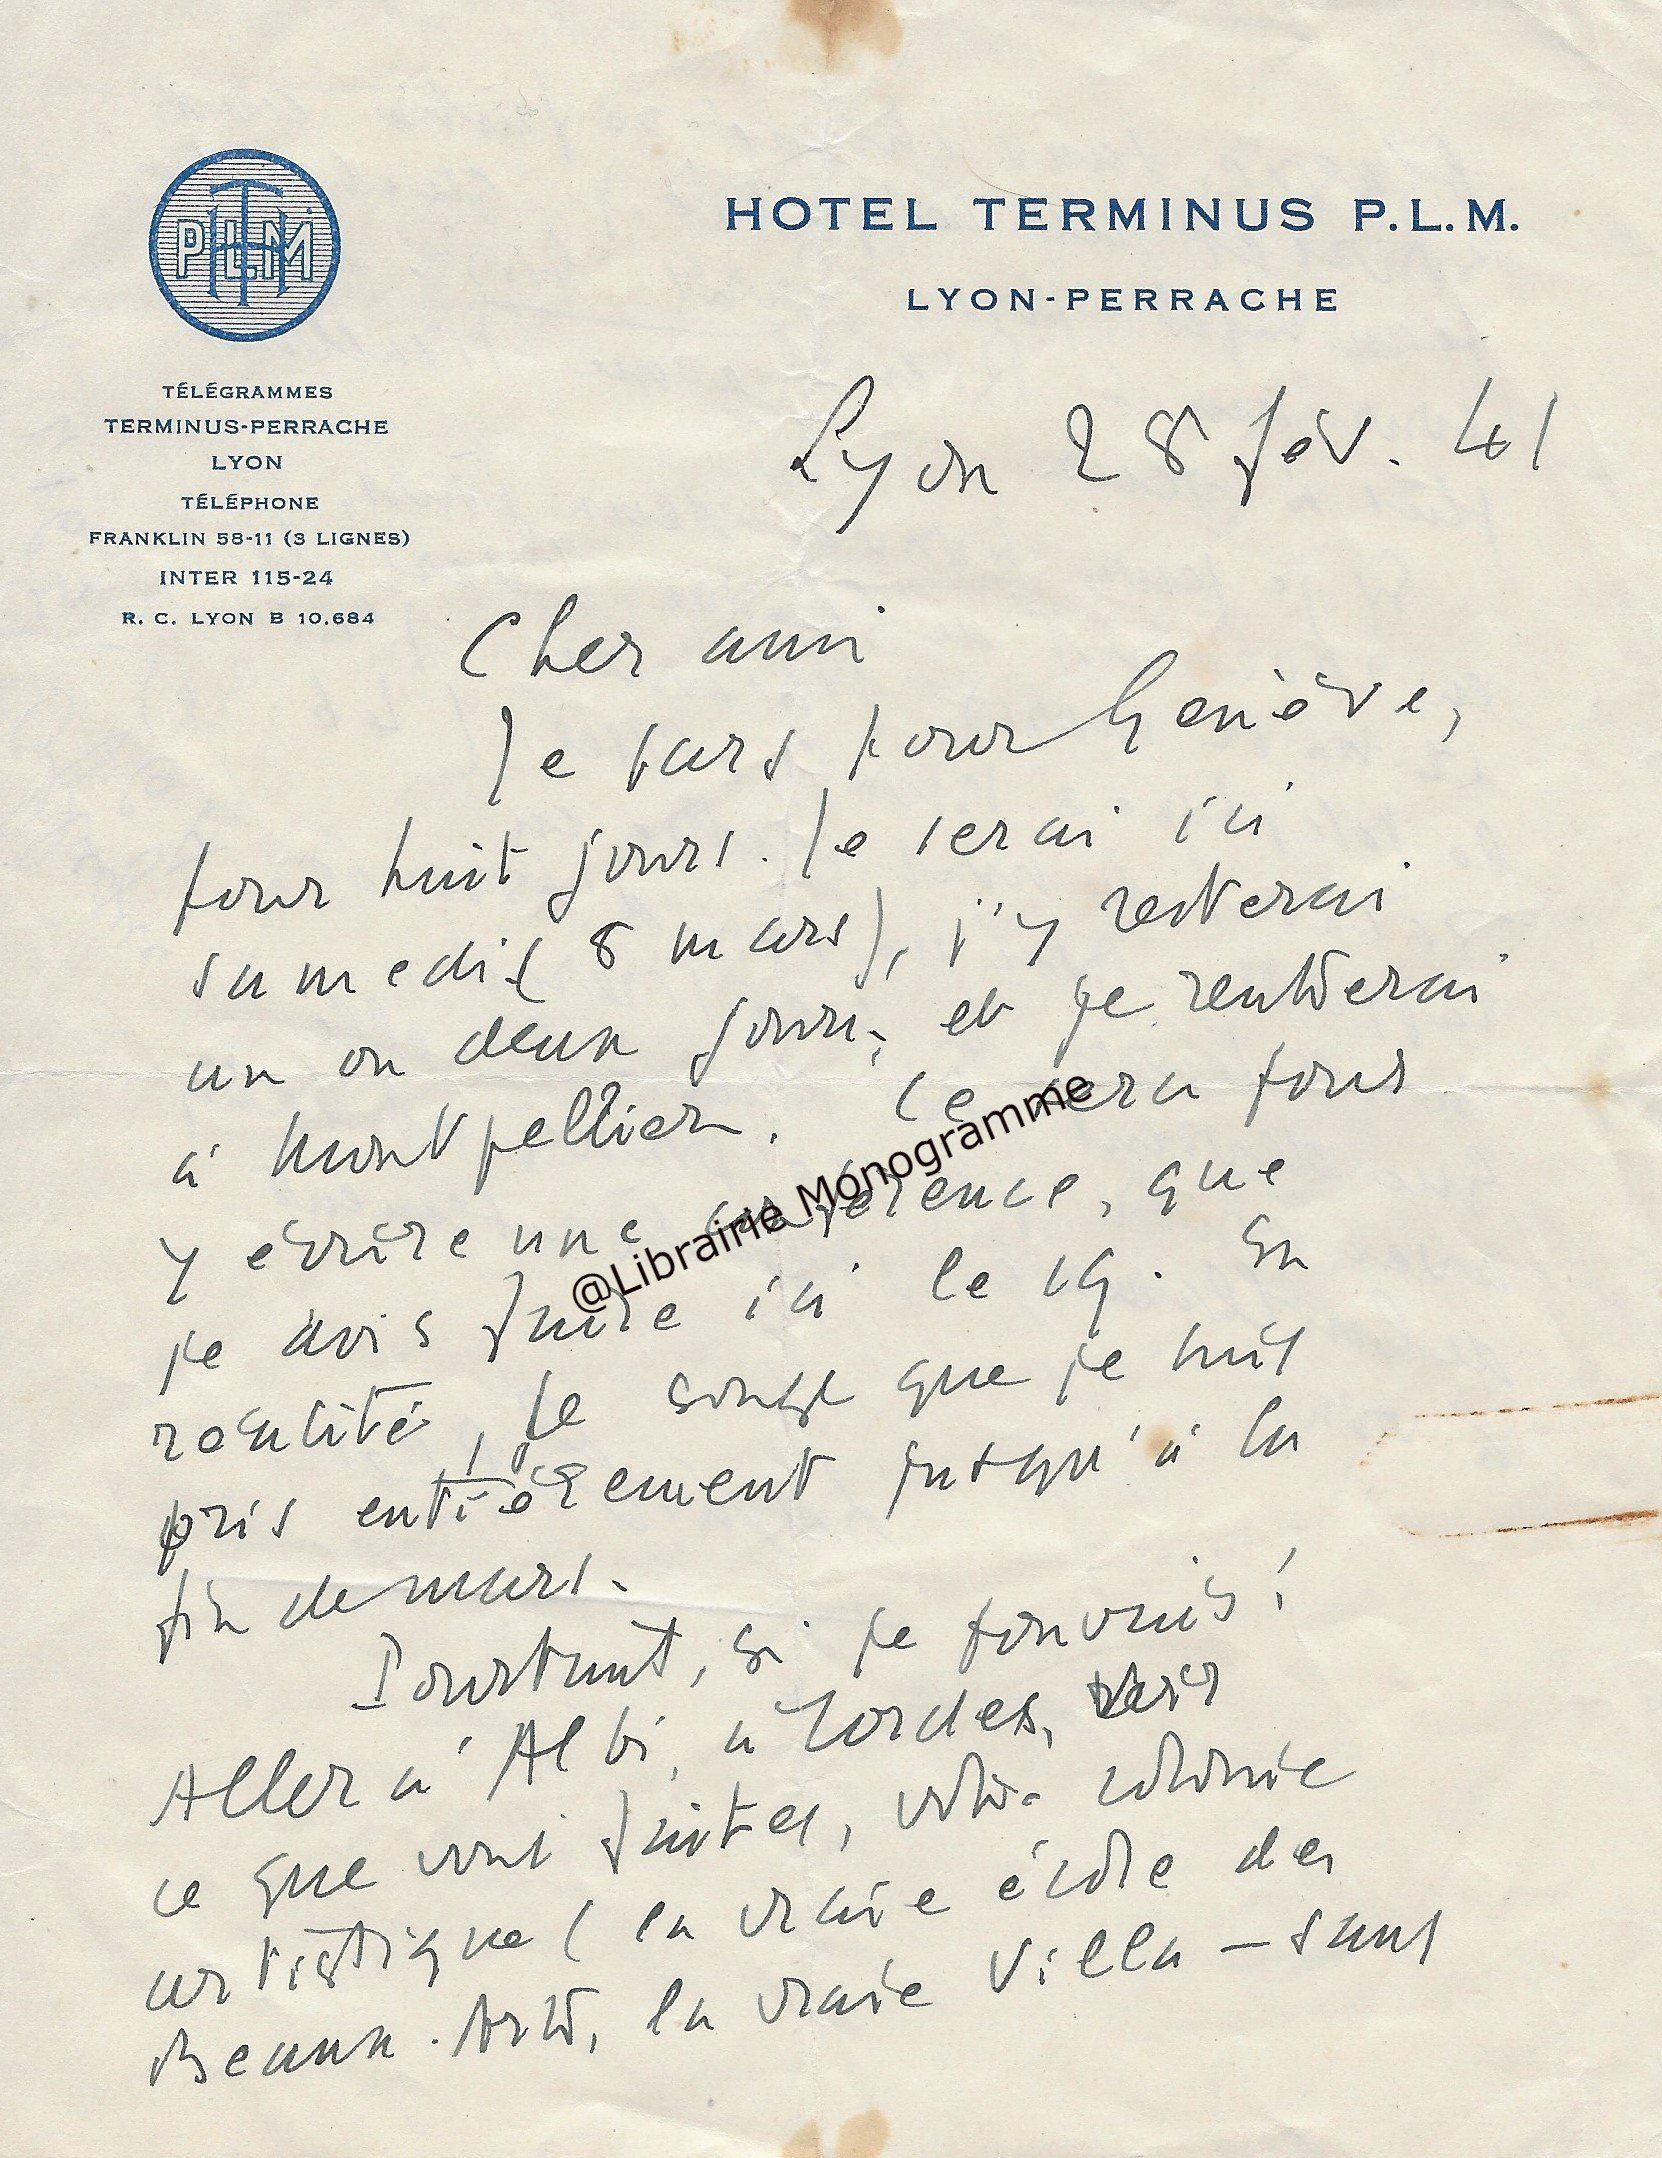 HOTEL TERMINUS P.L.M.
LYON-PERRACHE
PLM
TÉLÉGRAMMES
TERMINUS-PERRACHE
LYON
TÉLÉPHONE
FRANKLIN 58-11 (3 LIGNES)
INTER 115-24
R. C. LYON B 10.684
Lyon 28 fév. 41
Cher ami
Je pars pour Genève,
pour huit jours. Je serai ici
samedi (8 mars), j'y resterai
un ou deux jours, et je rentrerai
à Montpellier. Ce sera pour
y écrire une conférence, que
je dois faire ici le 19. En
réalité, je songe que je suis
pris entièrement jusqu'à la
fin de mars.
Pourtant, si je pouvais!
Aller à Albi, à Cordes, voir
ce que vous faites, votre colonie
artistique (la vraie école des
Beaux-Arts, la vraie Villa – sans
@Librairie Monogramme